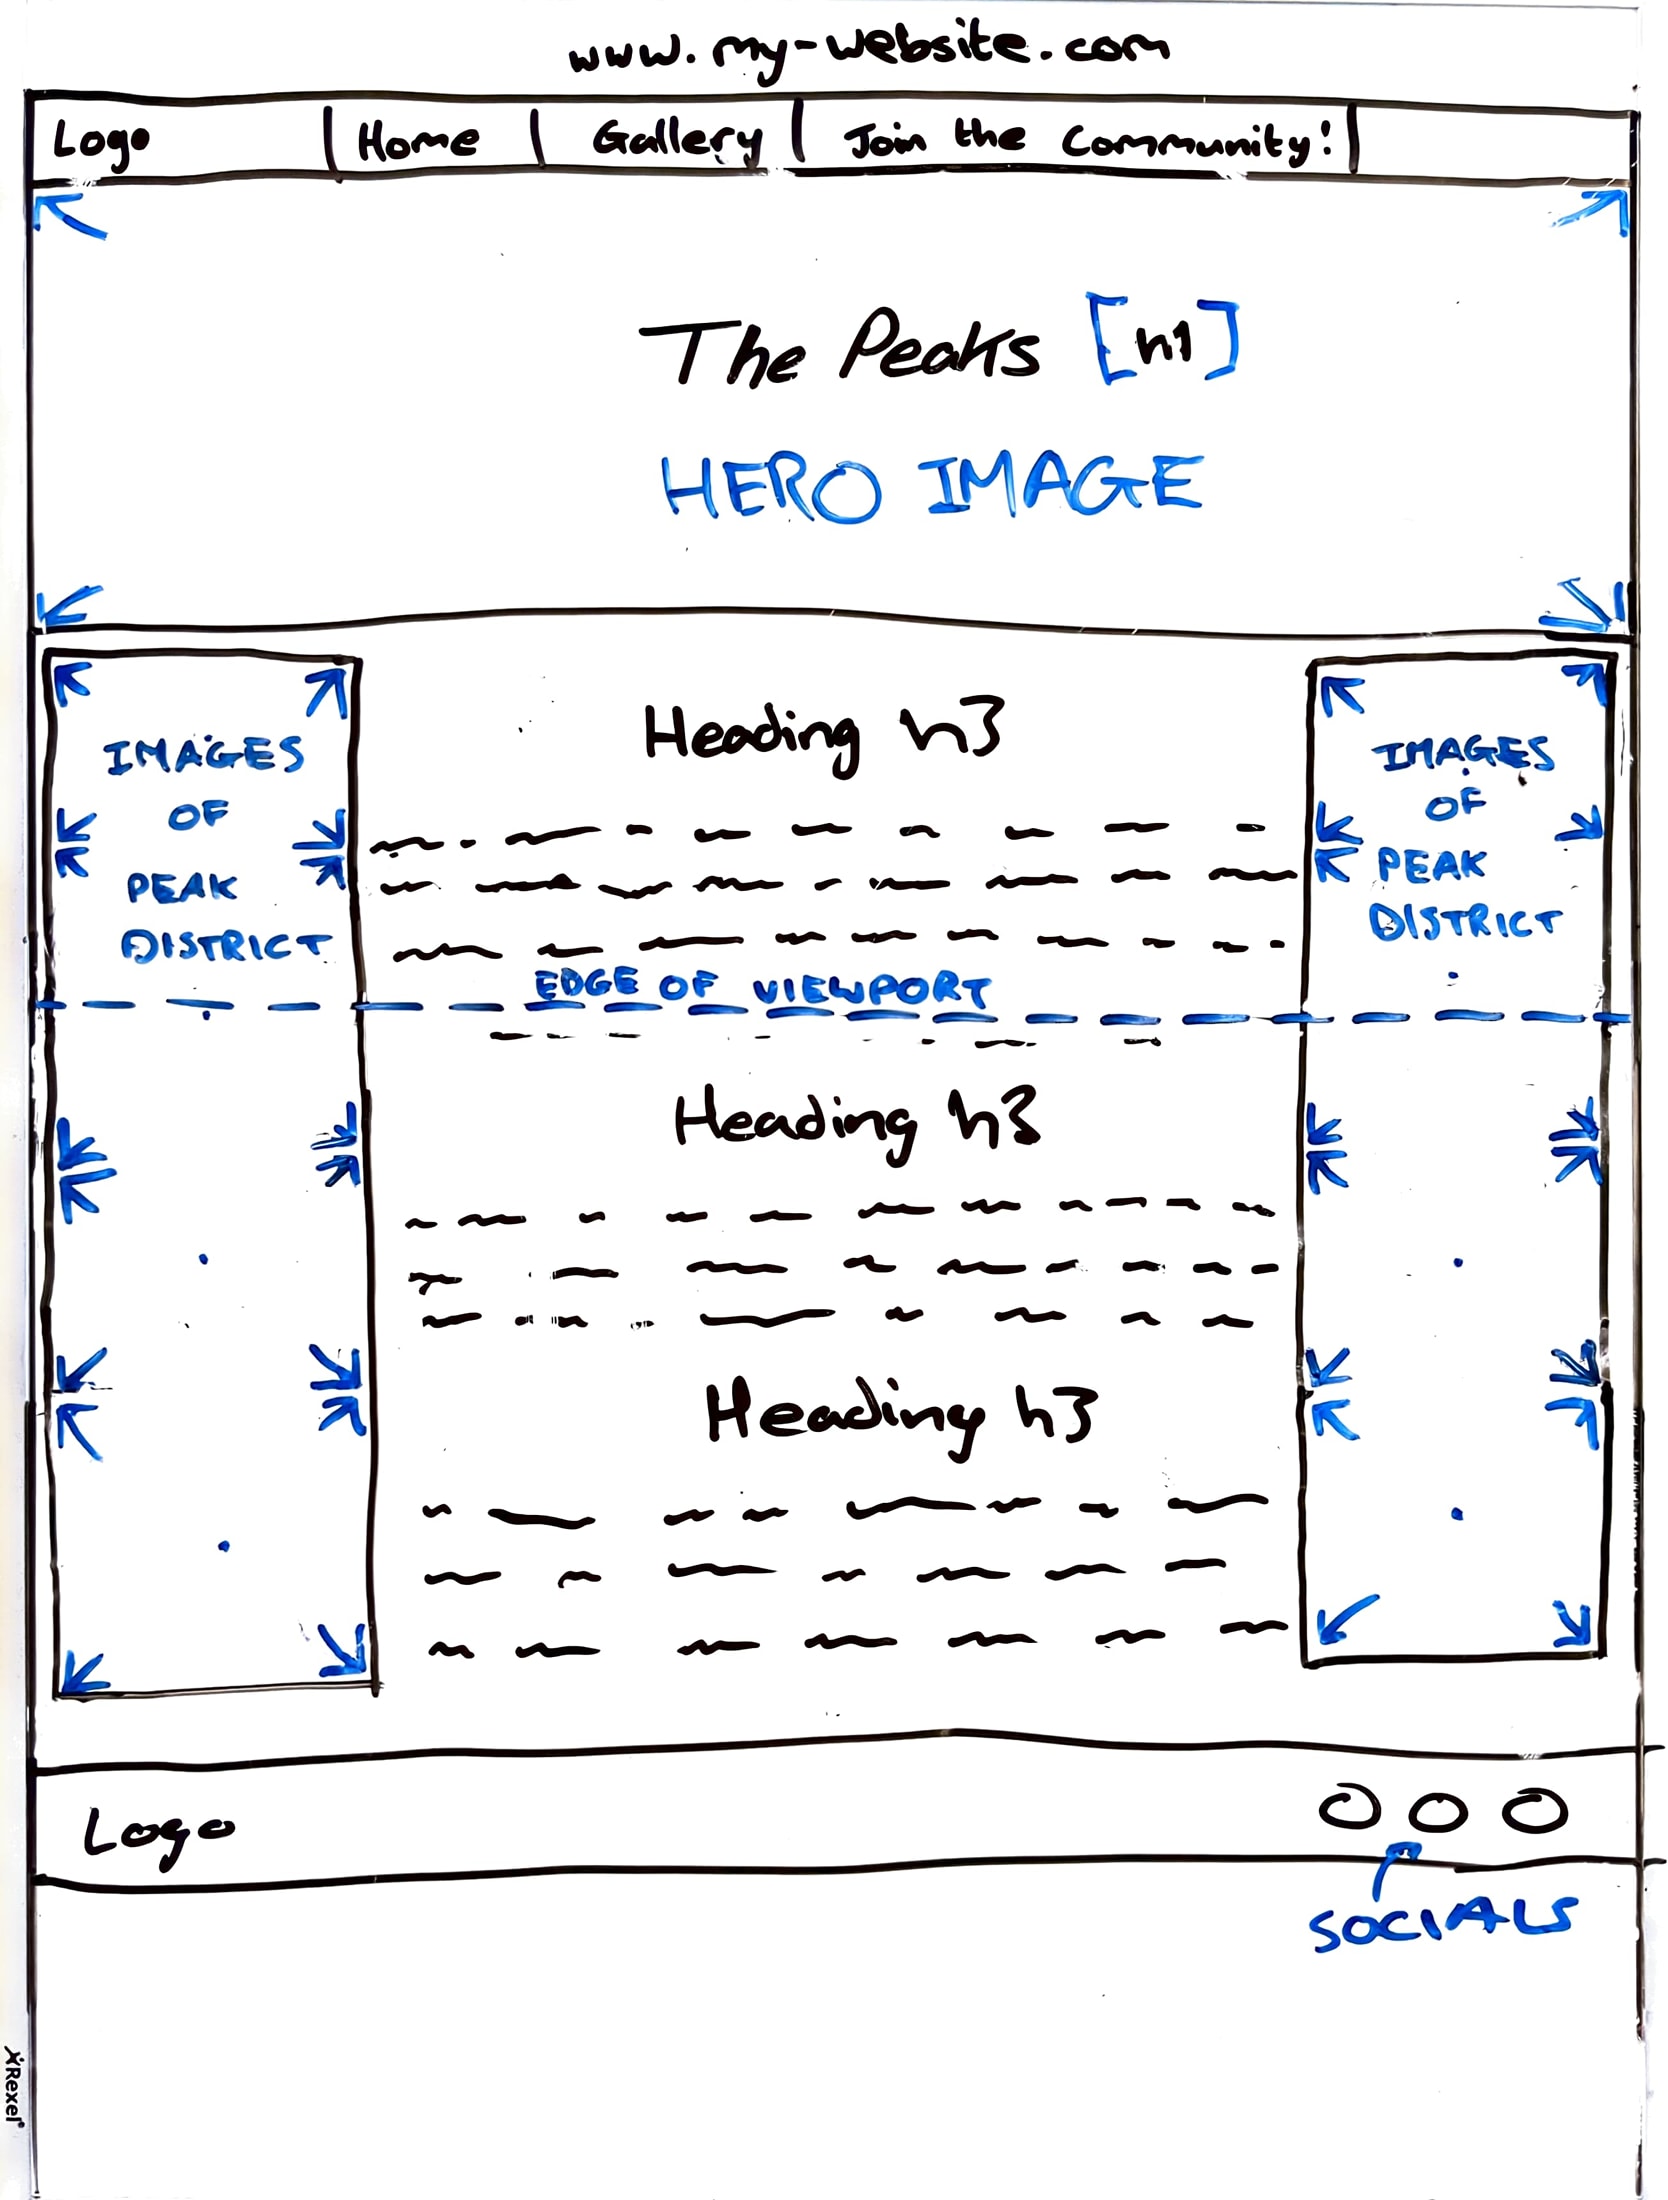 www.my-website.com
Logo | Home | Gallery | Join the Community! |
The Peaks [h1]
HERO IMAGE
IMAGES
OF
PEAK
DISTRICT
Heading h3
IMAGES
OF
PEAK
DISTRICT
EDGE OF VIEWPORT
Heading h3
Heading h3
Logo
SOCIALS
Rexel